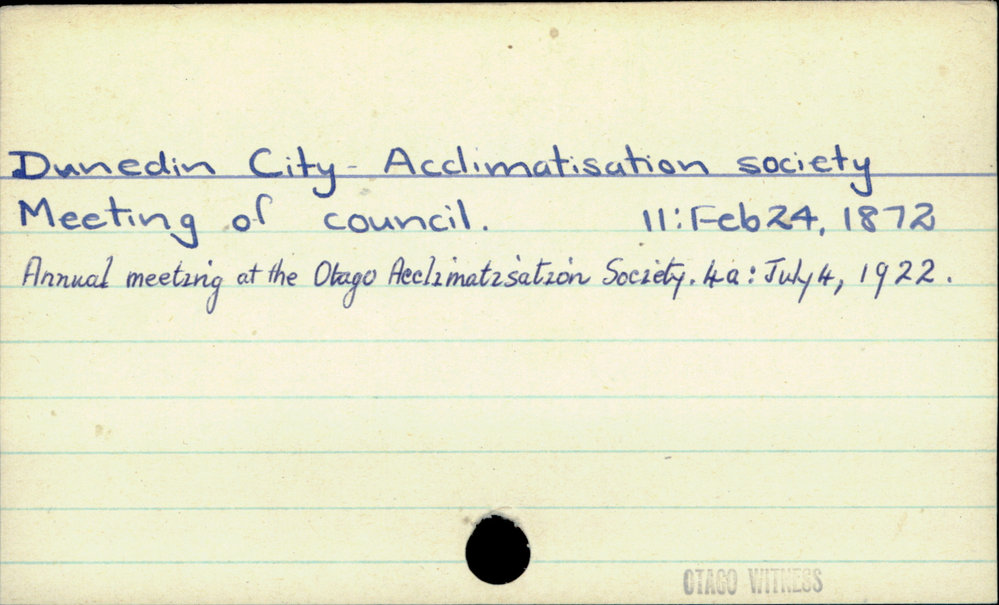 Dunedin City - Acclimatisation society
Meeting of council. 11: Feb 24, 1872
Annual meeting at the Otago Acclimatisation Society. 4a: July 4, 1922.
OTAGO WITNESS